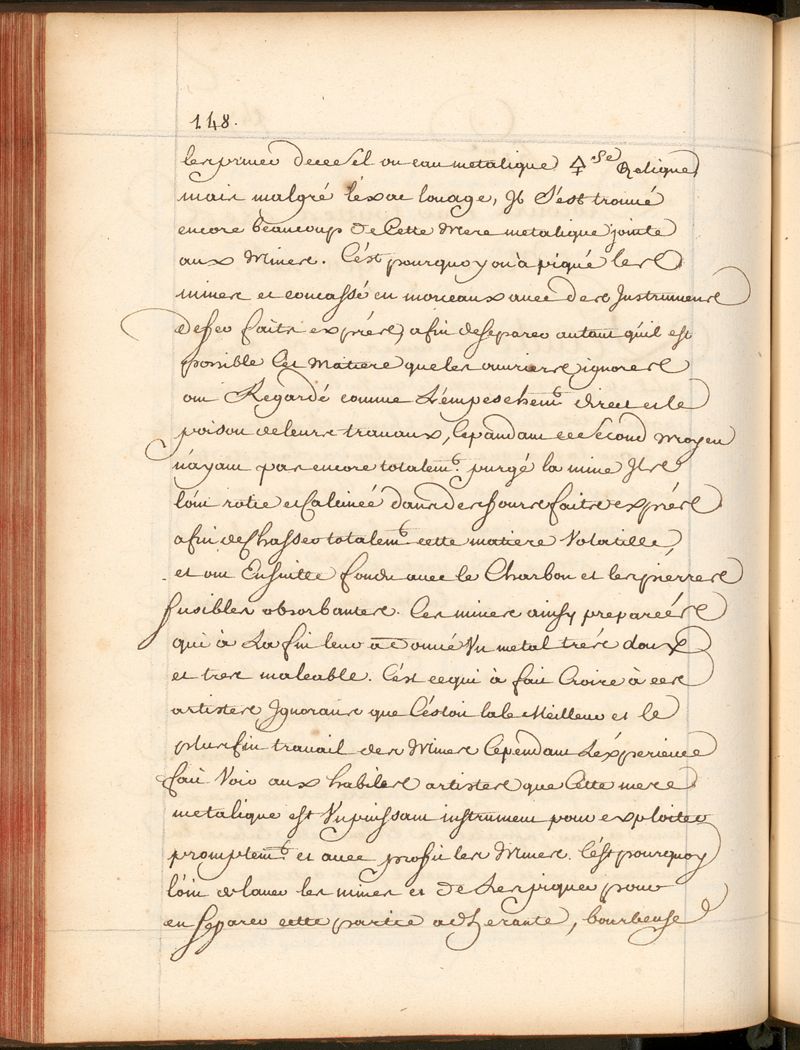 148.
les prive de ce Sel ou eau metalique 🜍 se Religne
mais malgré léxac lauage, Il S'est trouué
encore beaucoup de Cette Mere metalique jointe
aux Mines. Cést pourquoy on à piqué les
mines et concassé en morceaux auec des Instrumens
de feu faits exprés, afin de separer autant qu'il est
possible Cet Matiere que les ouuriers ignores
ont Regardé comme L'émpeschemt. direct et le
poison de leurs trauaux, Cependant ce Second Moyen
n'ayant pas encore totalemt. purgé la mine Ils
l'ont rotie et Calcinéé dans des fours faits exprés
afin de Chasser totalemt. cette matiere Volatille,
et ont Ensuitte fondu auec le Charbon et les piérres
fusibles absorbantes. Ces mines ainsy preparéés
qui à La fin leur a donné Vn metal trés doux
et tres maleable. Cést cequi à fait Croire à ces
artistes Ignorants que Céstoit la le Meilleur et le
plus fin trauail des Mines Cependant L'éxperience
fait Voir aux habiles artistes que Cette mere
metalique est Vn puissant instrument pour exploiter
promptemt. et auec profit les Mines. Cést pourquoy
loin de lauer les mines et de Les piquer pour
en Separer cette partie adherante, bourbeuse